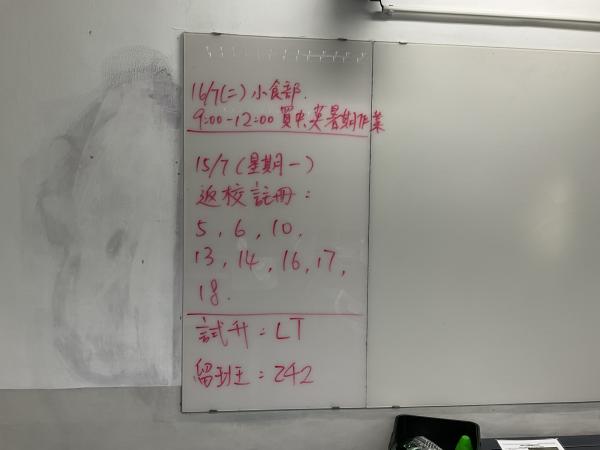 16/7(二)小食部.
9:00-12:00 買中,英暑期作業
15/7(星期一)
返校註冊:
5, 6, 10,
13, 14, 16, 17,
18.
試升:LT
留班:242